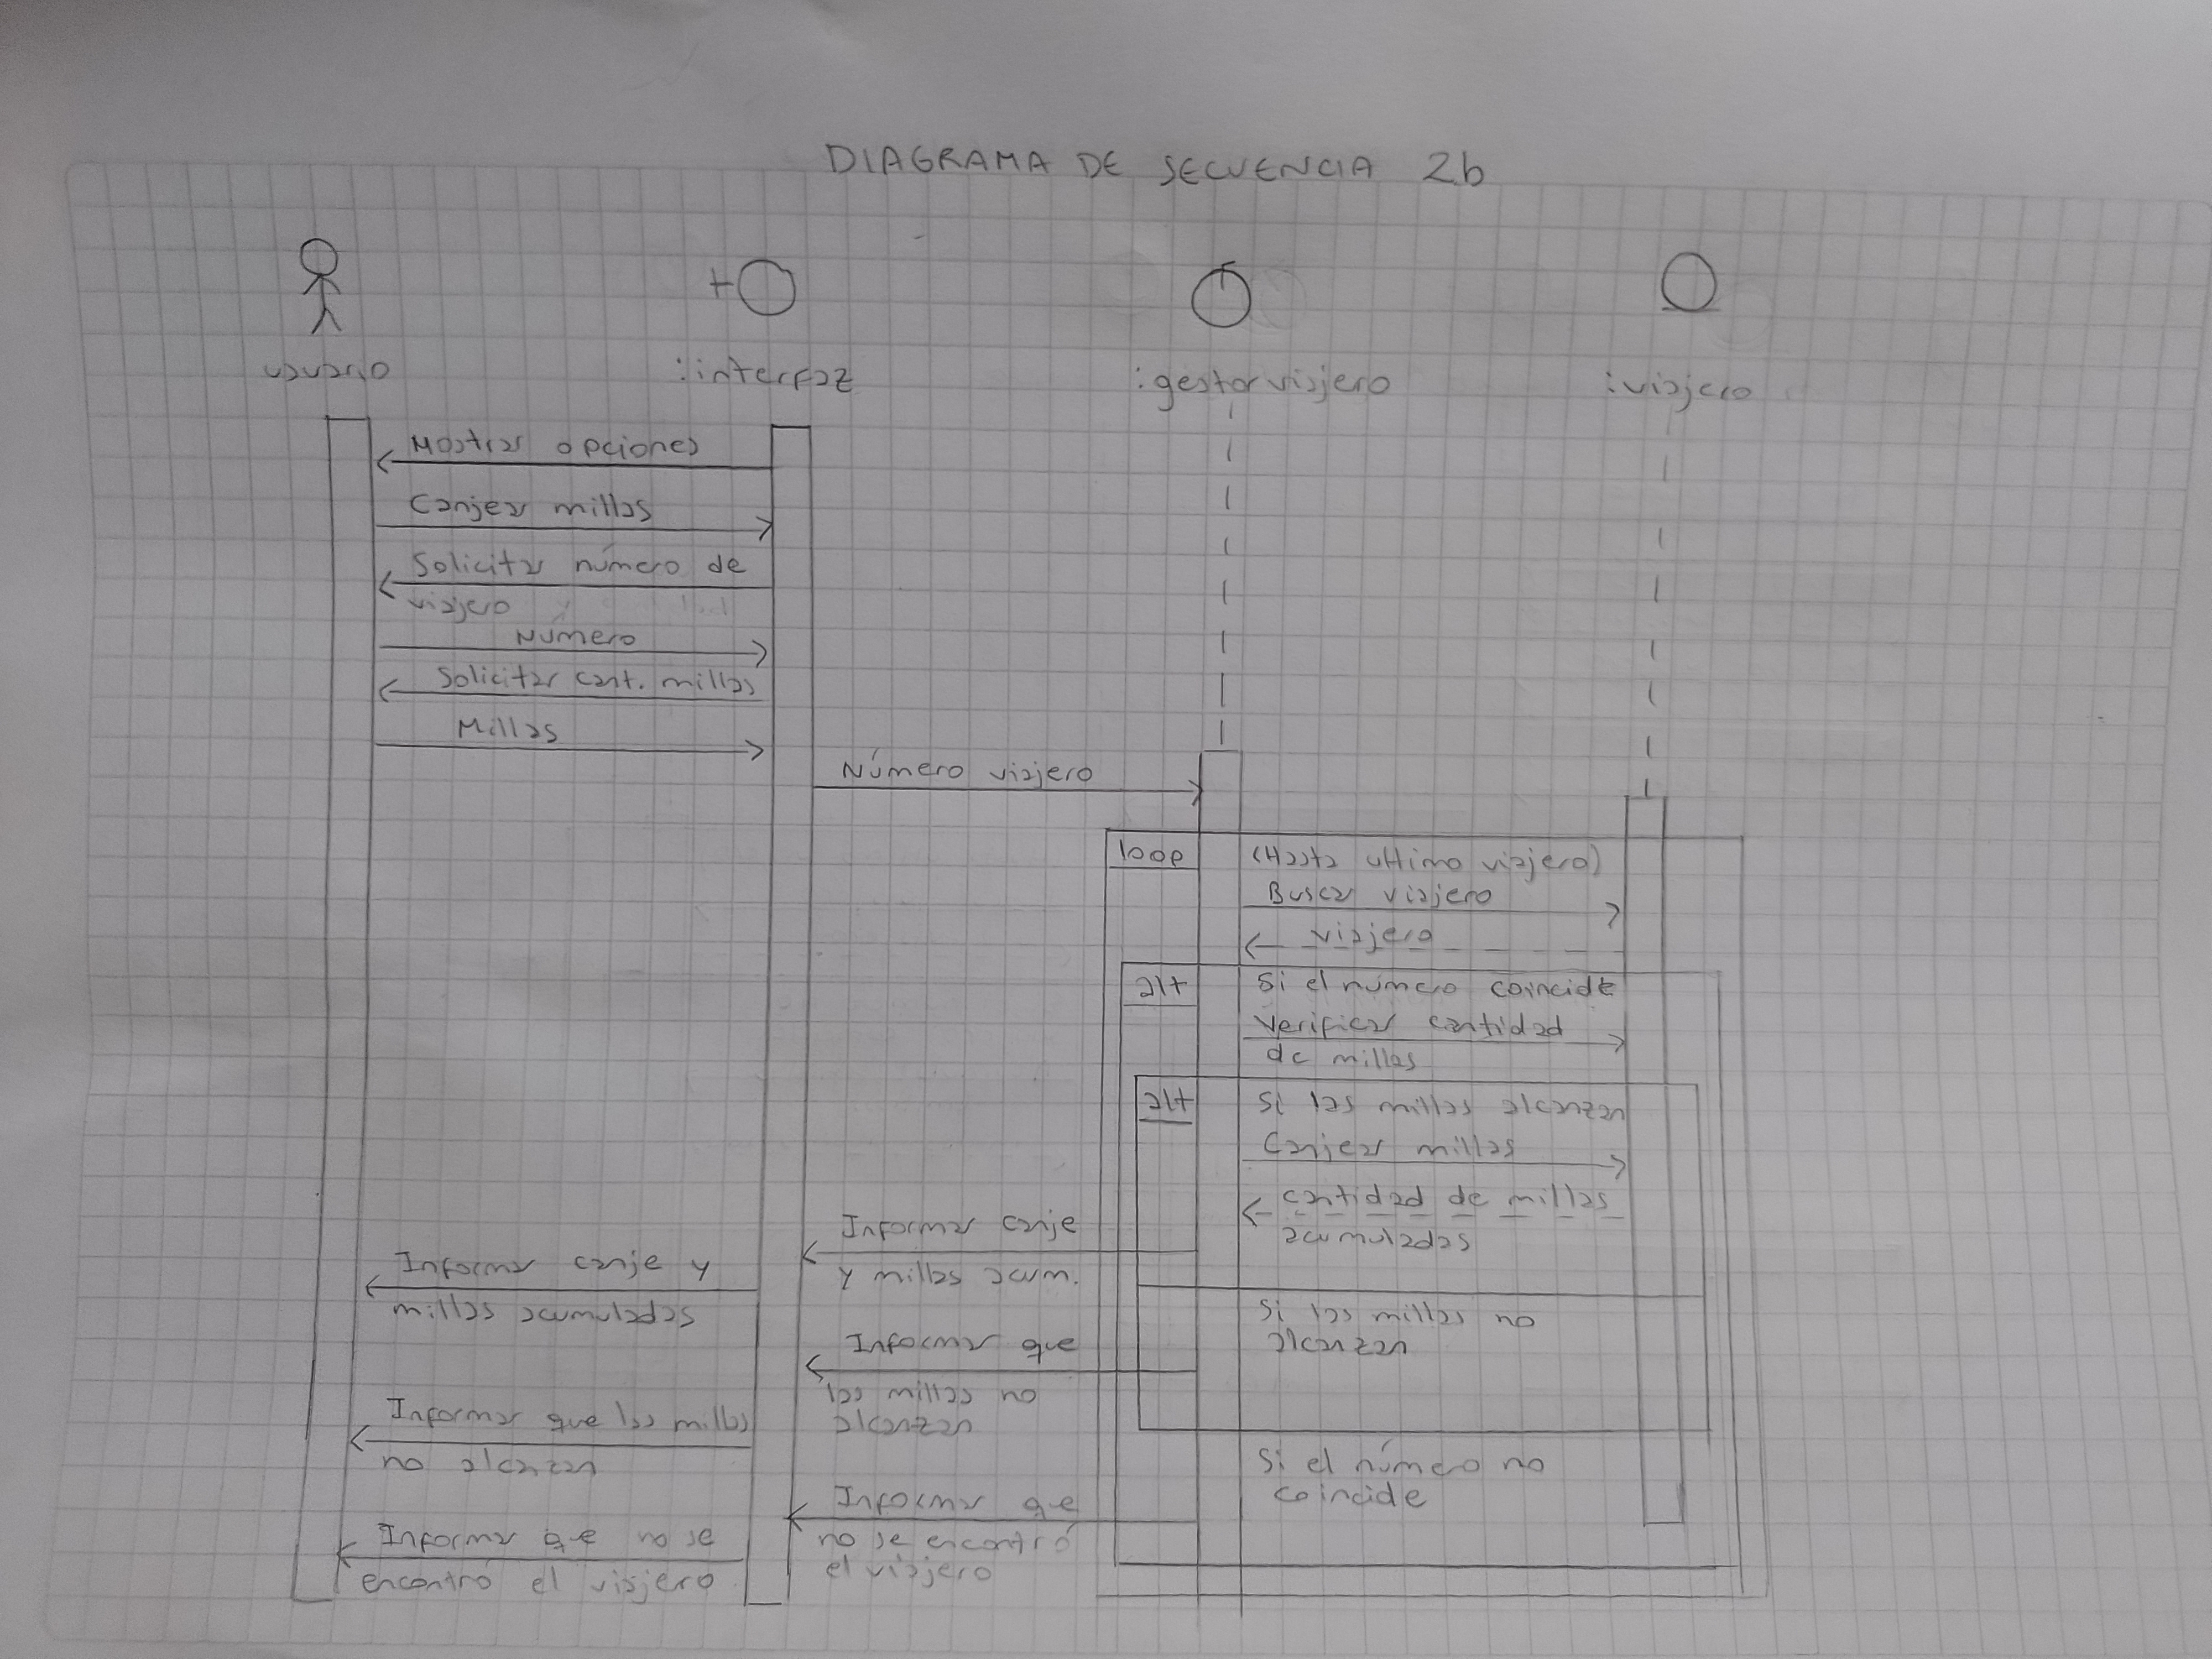 DIAGRAMA DE SECUENCIA 2b
usuario
:interfaz
:gestor viajero
:viajero
Mostrar opciones
Canjear millas
Solicitar número de
viajero
Número
Solicitar cant. millas
Millas
Número viajero
loop
(Hasta ultimo viajero)
Buscar viajero
viajero
alt
Si el número coincide
Verificar cantidad
de millas
alt
Si las millas alcanzan
Canjear millas
cantidad de millas
acumuladas
Informar canje
y millas acum.
Informar canje y
millas acumuladas
Si las millas no
alcanzan
Informar que
las millas no
alcanzan
Informar que las millas
no alcanzan
Si el número no
coincide
Informar que
no se encontró
el viajero
Informar que no se
encontró el viajero